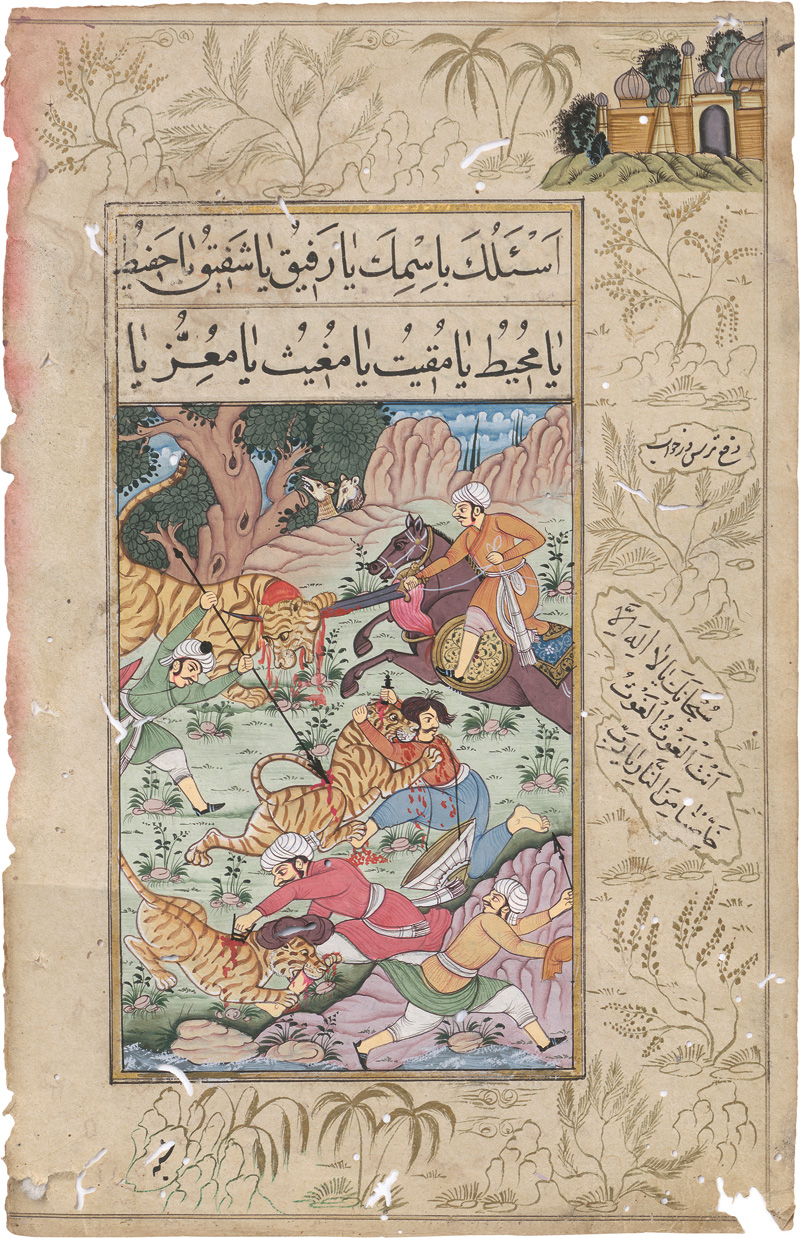 اَسْئَلُكَ بِاسْمِكَ يَا رَفِيقُ يَا شَفِيقُ يَا حَفِيظُ
يَا مُحِيطُ يَا مُقِيتُ يَا مُغِيثُ يَا مُعِزُّ يَا
دفع ترسی در خواب
سُبْحَانَكَ يَا لَا اِلَهَ اِلَّا
اَنْتَ الْغَوْثُ الْغَوْثُ
خَلِّصْنَا مِنَ النَّارِ يَا رَبِّ